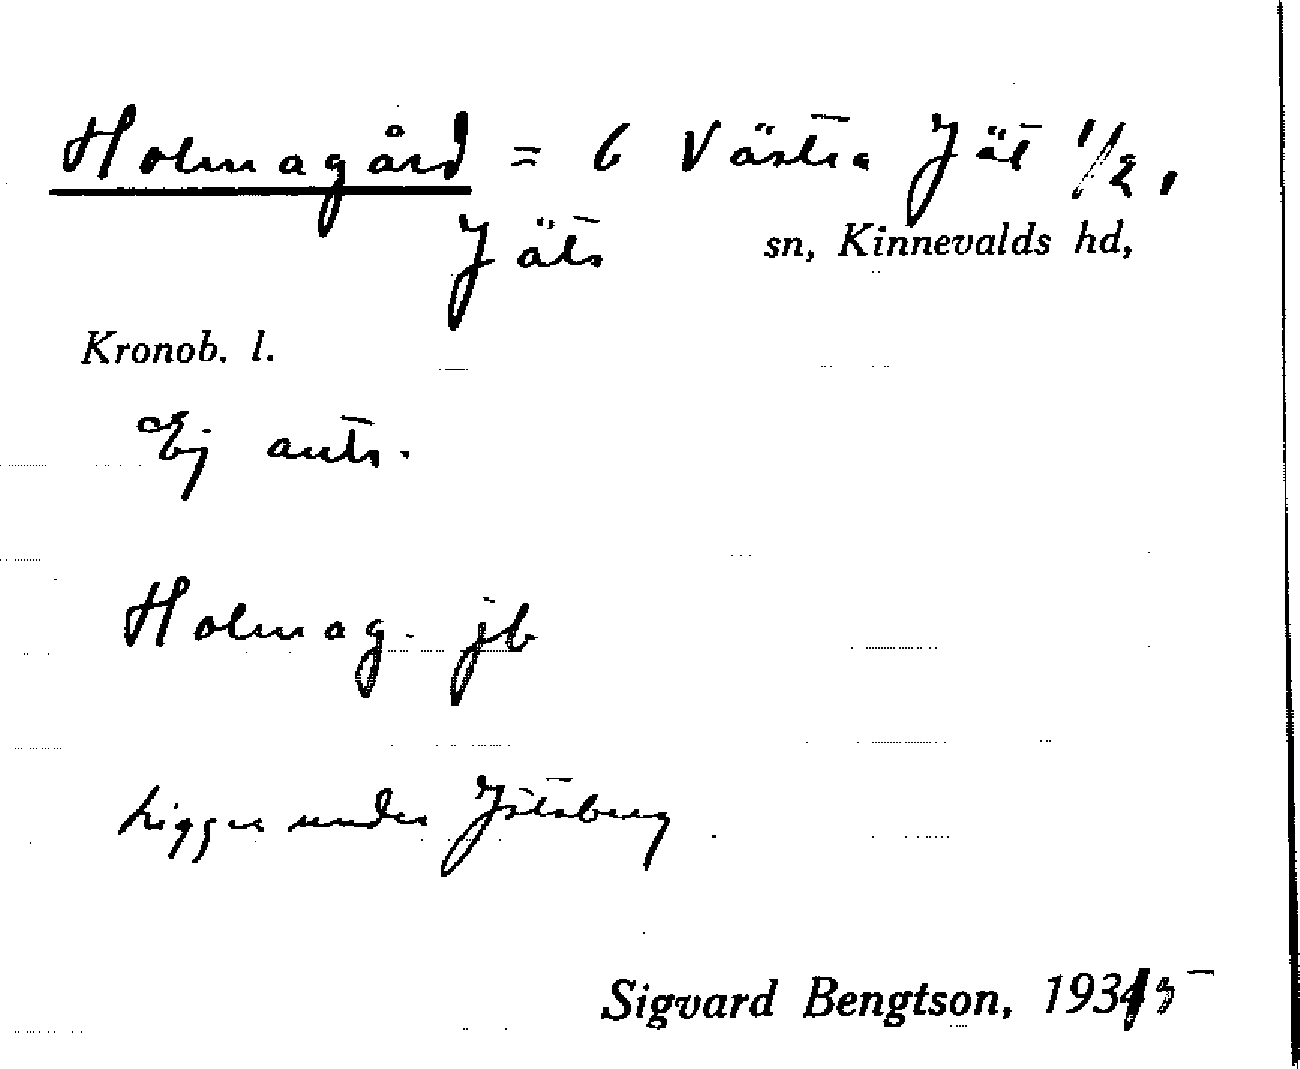 Holmagård = 6 Västra Jät 1/2,
Jäts sn, Kinnevalds hd,
Kronob. l.
Ej ants.
Holmag. jb
Ligger under Jätsberg
Sigvard Bengtson, 1935